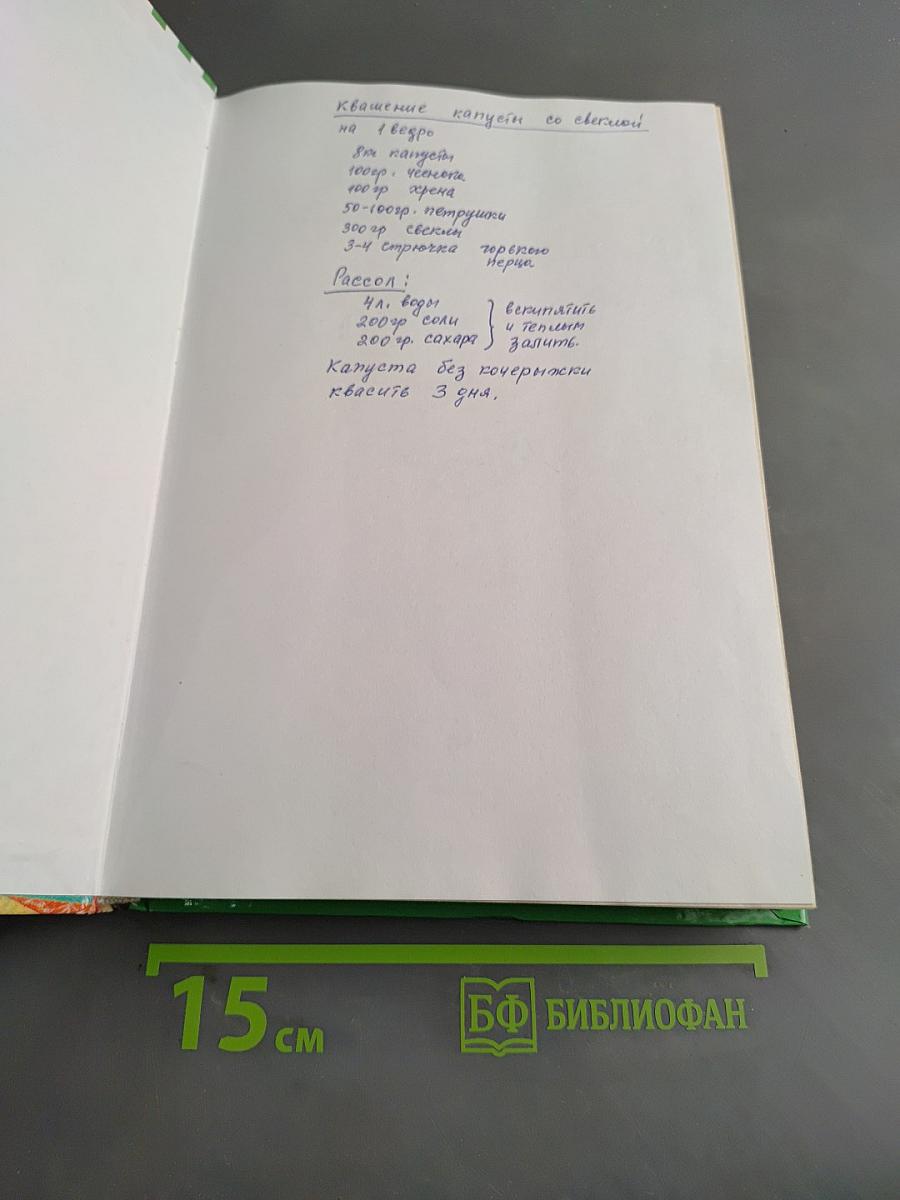 Квашение капусты со свеклой
на 1 ведро
8кг капусты
100гр. чеснока
100гр хрена
50-100гр. петрушки
300гр свеклы
3-4 стрючка горького
перца
Рассол:
4л. воды
200гр соли
200гр. сахара
вскипятить
и теплым
залить.
Капуста без кочерыжки
квасить 3 дня.
15 см
БФ БИБЛИОФАН